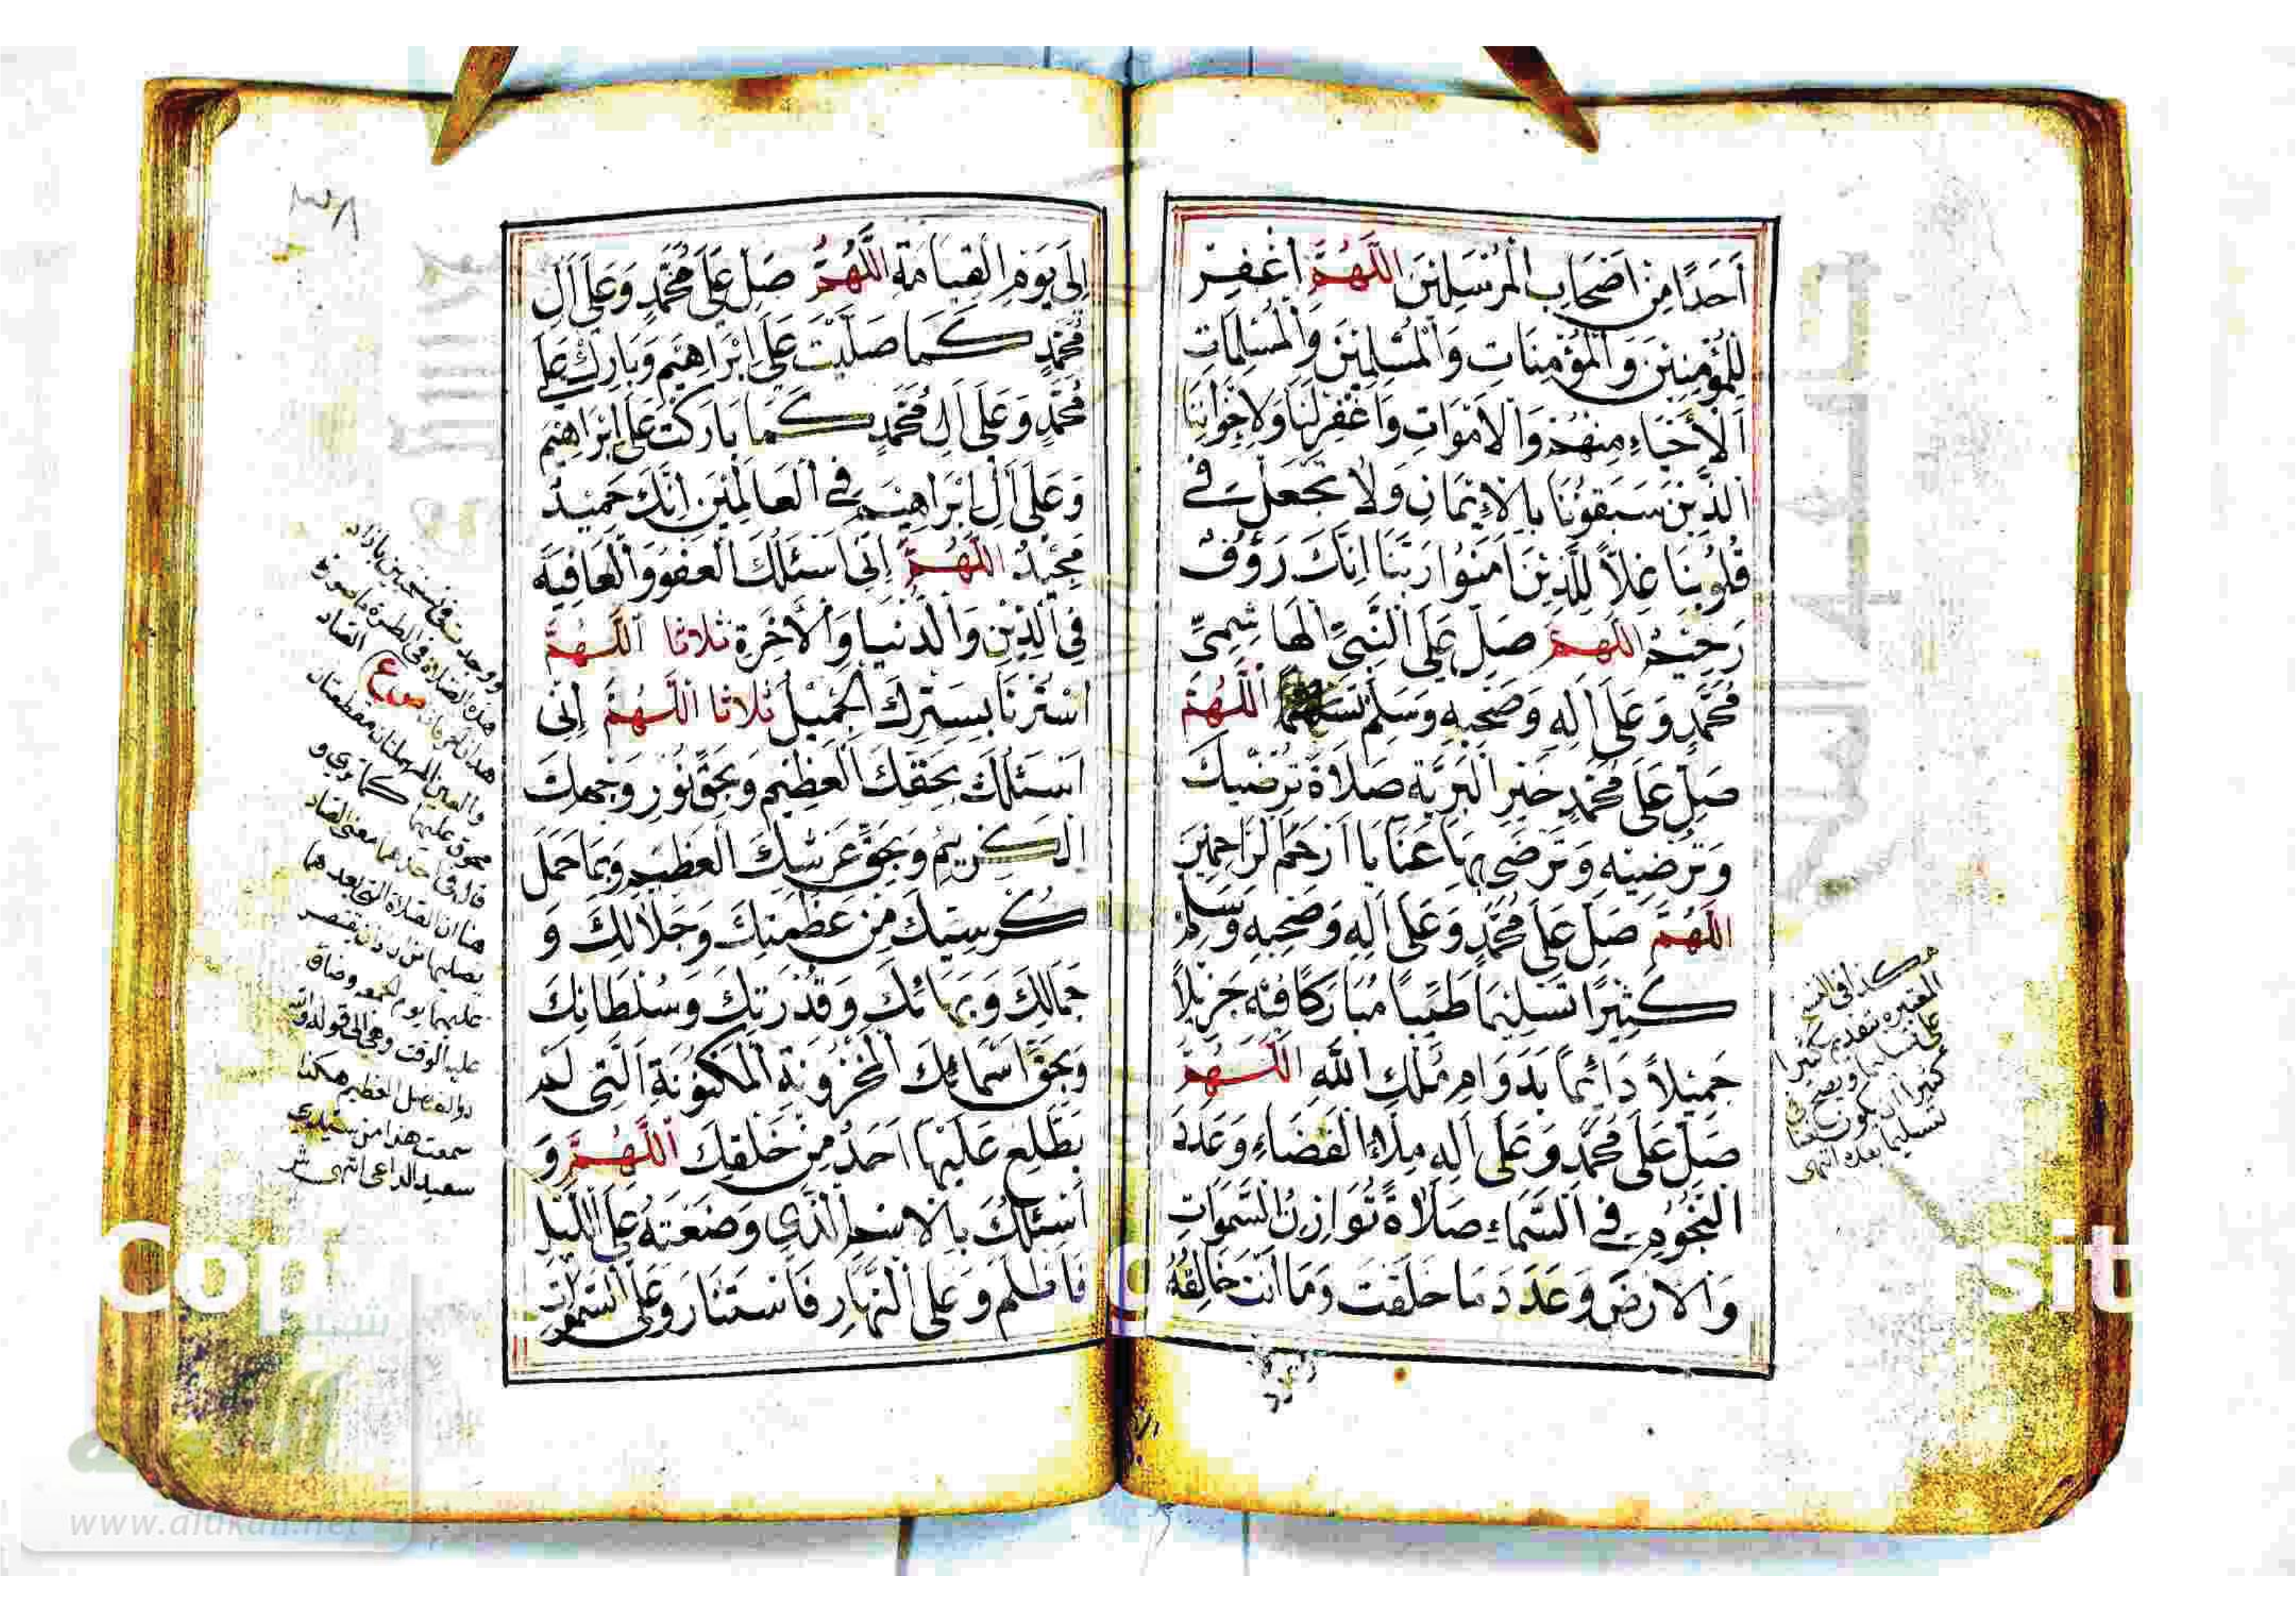 أَحَدًا مِنْ أَصْحَابِ الْمُرْسَلِينَ اللَّهُمَّ اغْفِرْ
لِلْمُؤْمِنِينَ وَالْمُؤْمِنَاتِ وَالْمُسْلِمِينَ وَالْمُسْلِمَاتِ
اَلْأَحْيَاءِ مِنْهُمْ وَالْأَمْوَاتِ وَاغْفِرْ لَنَا وَلِإِخْوَانِنَا
الَّذِينَ سَبَقُونَا بِالْإِيمَانِ وَلَا تَجْعَلْ فِي
قُلُوبِنَا غِلًّا لِلَّذِينَ آمَنُوا رَبَّنَا إِنَّكَ رَؤُوفٌ
رَحِيمٌ اللَّهُمَّ صَلِّ عَلَى النَّبِيِّ الْهَاشِمِيِّ
مُحَمَّدٍ وَعَلَى آلِهِ وَصَحْبِهِ وَسَلِّمْ تَسْلِيمًا اللَّهُمَّ
صَلِّ عَلَى مُحَمَّدٍ خَيْرِ الْبَرِيَّةِ صَلَاةً تُرْضِيكَ
وَتُرْضِيهِ وَتَرْضَى بِهَا عَنَّا يَا أَرْحَمَ الرَّاحِمِينَ
اللَّهُمَّ صَلِّ عَلَى مُحَمَّدٍ وَعَلَى آلِهِ وَصَحْبِهِ وَسَلِّمْ
كَثِيرًا تَسْلِيمًا طَيِّبًا مُبَارَكًا فِيهِ جَزِيلًا
جَمِيلًا دَائِمًا بِدَوَامِ مُلْكِ اللهِ اللَّهُمَّ
صَلِّ عَلَى مُحَمَّدٍ وَعَلَى آلِهِ مِلْءَ الْفَضَاءِ وَعَدَدَ
النُّجُومِ فِي السَّمَاءِ صَلَاةً تُوَازِنُ السَّمَوَاتِ
وَالْأَرْضَ وَعَدَدَ مَا خَلَقْتَ وَمَا أَنْتَ خَالِقُهُ
هكذا في النسخ
بتقديم كثيرا
على تسليما
تسليما بعده انتهى
٣٨
إِلَى يَوْمِ الْقِيَامَةِ اللَّهُمَّ صَلِّ عَلَى مُحَمَّدٍ وَعَلَى آلِ
مُحَمَّدٍ كَمَا صَلَّيْتَ عَلَى إِبْرَاهِيمَ وَبَارِكْ عَلَى
مُحَمَّدٍ وَعَلَى آلِ مُحَمَّدٍ كَمَا بَارَكْتَ عَلَى إِبْرَاهِيمَ
وَعَلَى آلِ إِبْرَاهِيمَ فِي الْعَالَمِينَ إِنَّكَ حَمِيدٌ
مَجِيدٌ اللَّهُمَّ إِنِّي أَسْئَلُكَ الْعَفْوَ وَالْعَافِيَةَ
فِي الدِّينِ وَالدُّنْيَا وَالْآخِرَةِ ثلاثا اَللَّهُمَّ
اسْتُرْنَا بِسِتْرِكَ الْجَمِيلِ ثلاثا اللَّهُمَّ إِنِّي
أَسْئَلُكَ بِحَقِّكَ الْعَظِيمِ وَبِحَقِّ نُورِ وَجْهِكَ
الْكَرِيمِ وَبِحَقِّ عَرْشِكَ الْعَظِيمِ وَبِمَا حَمَلَ
كُرْسِيُّكَ مِنْ عَظَمَتِكَ وَجَلَالِكَ وَ
جَمَالِكَ وَبَهَائِكَ وَقُدْرَتِكَ وَسُلْطَانِكَ
وَبِحَقِّ أَسْمَائِكَ الْمَخْزُونَةِ الْمَكْنُونَةِ الَّتِي لَمْ
يَطَّلِعْ عَلَيْهَا أَحَدٌ مِنْ خَلْقِكَ اَللَّهُمَّ وَ
أَسْئَلُكَ بِالْاِسْمِ الَّذِي وَضَعْتَهُ عَلَى اللَّيْلِ
فَأَظْلَمَ وَعَلَى النَّهَارِ فَاسْتَنَارَ وَعَلَى السَّمَوَاتِ
هذه الصلاة في الطرة ما صورة
والعين المهملتان مقطعتان
هنا ان الصلاة التي بعدهما
عليهما يوم الجمعة وضاق
عليه الوقت
ذو الفضل العظيم هكذا
سمعت هذا من سيدي
سعيد الداعي انتهى
www.alukah.net